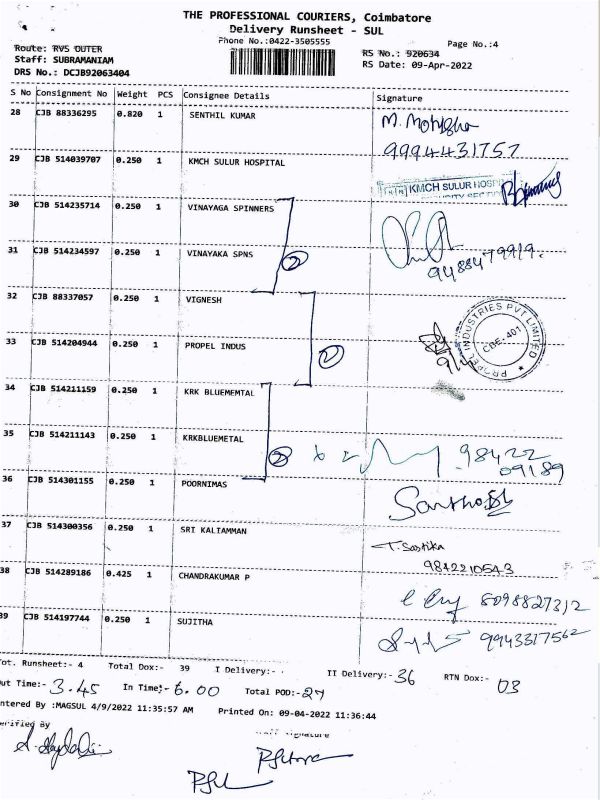 THE PROFESSIONAL COURIERS, Coimbatore
Delivery Runsheet - SUL
Phone No.:0422-3505555
Page No.:4
Route: RVS OUTER
RS No.: 920634
Staff: SUBRAMANIAM
RS Date: 09-Apr-2022
DRS No.: DCJB92063404
S No Consignment No Weight PCS Consignee Details Signature
28 CJB 88336295 0.820 1 SENTHIL KUMAR
9994431757
29 CJB 514039707 0.250 1 KMCH SULUR HOSPITAL
KMCH SULUR HOSPI
30 CJB 514235714 0.250 1 VINAYAGA SPINNERS
31 CJB 514234597 0.250 1 VINAYAKA SPNS
2
9488479919.
32 CJB 88337057 0.250 1 VIGNESH
33 CJB 514204944 0.250 1 PROPEL INDUS
2
PROPEL INDUSTRIES PVT LIMITED
CBE-401
34 CJB 514211159 0.250 1 KRK BLUEMEMTAL
35 CJB 514211143 0.250 1 KRKBLUEMETAL
2
98422
09189
36 CJB 514301155 0.250 1 POORNIMAS
37 CJB 514300356 0.250 1 SRI KALIAMMAN
T. Sastika
9842210543
38 CJB 514289186 0.425 1 CHANDRAKUMAR P
8098827312
39 CJB 514197744 0.250 1 SUJITHA
9943317562
Tot. Runsheet:- 4 Total Dox:- 39 I Delivery:- II Delivery:- 36 RTN Dox:- 03
Out Time:- 3.45 In Time:- 6.00 Total POD:- 27
Entered By :MAGSUL 4/9/2022 11:35:57 AM Printed On: 09-04-2022 11:36:44
Verified By
Staff Signature